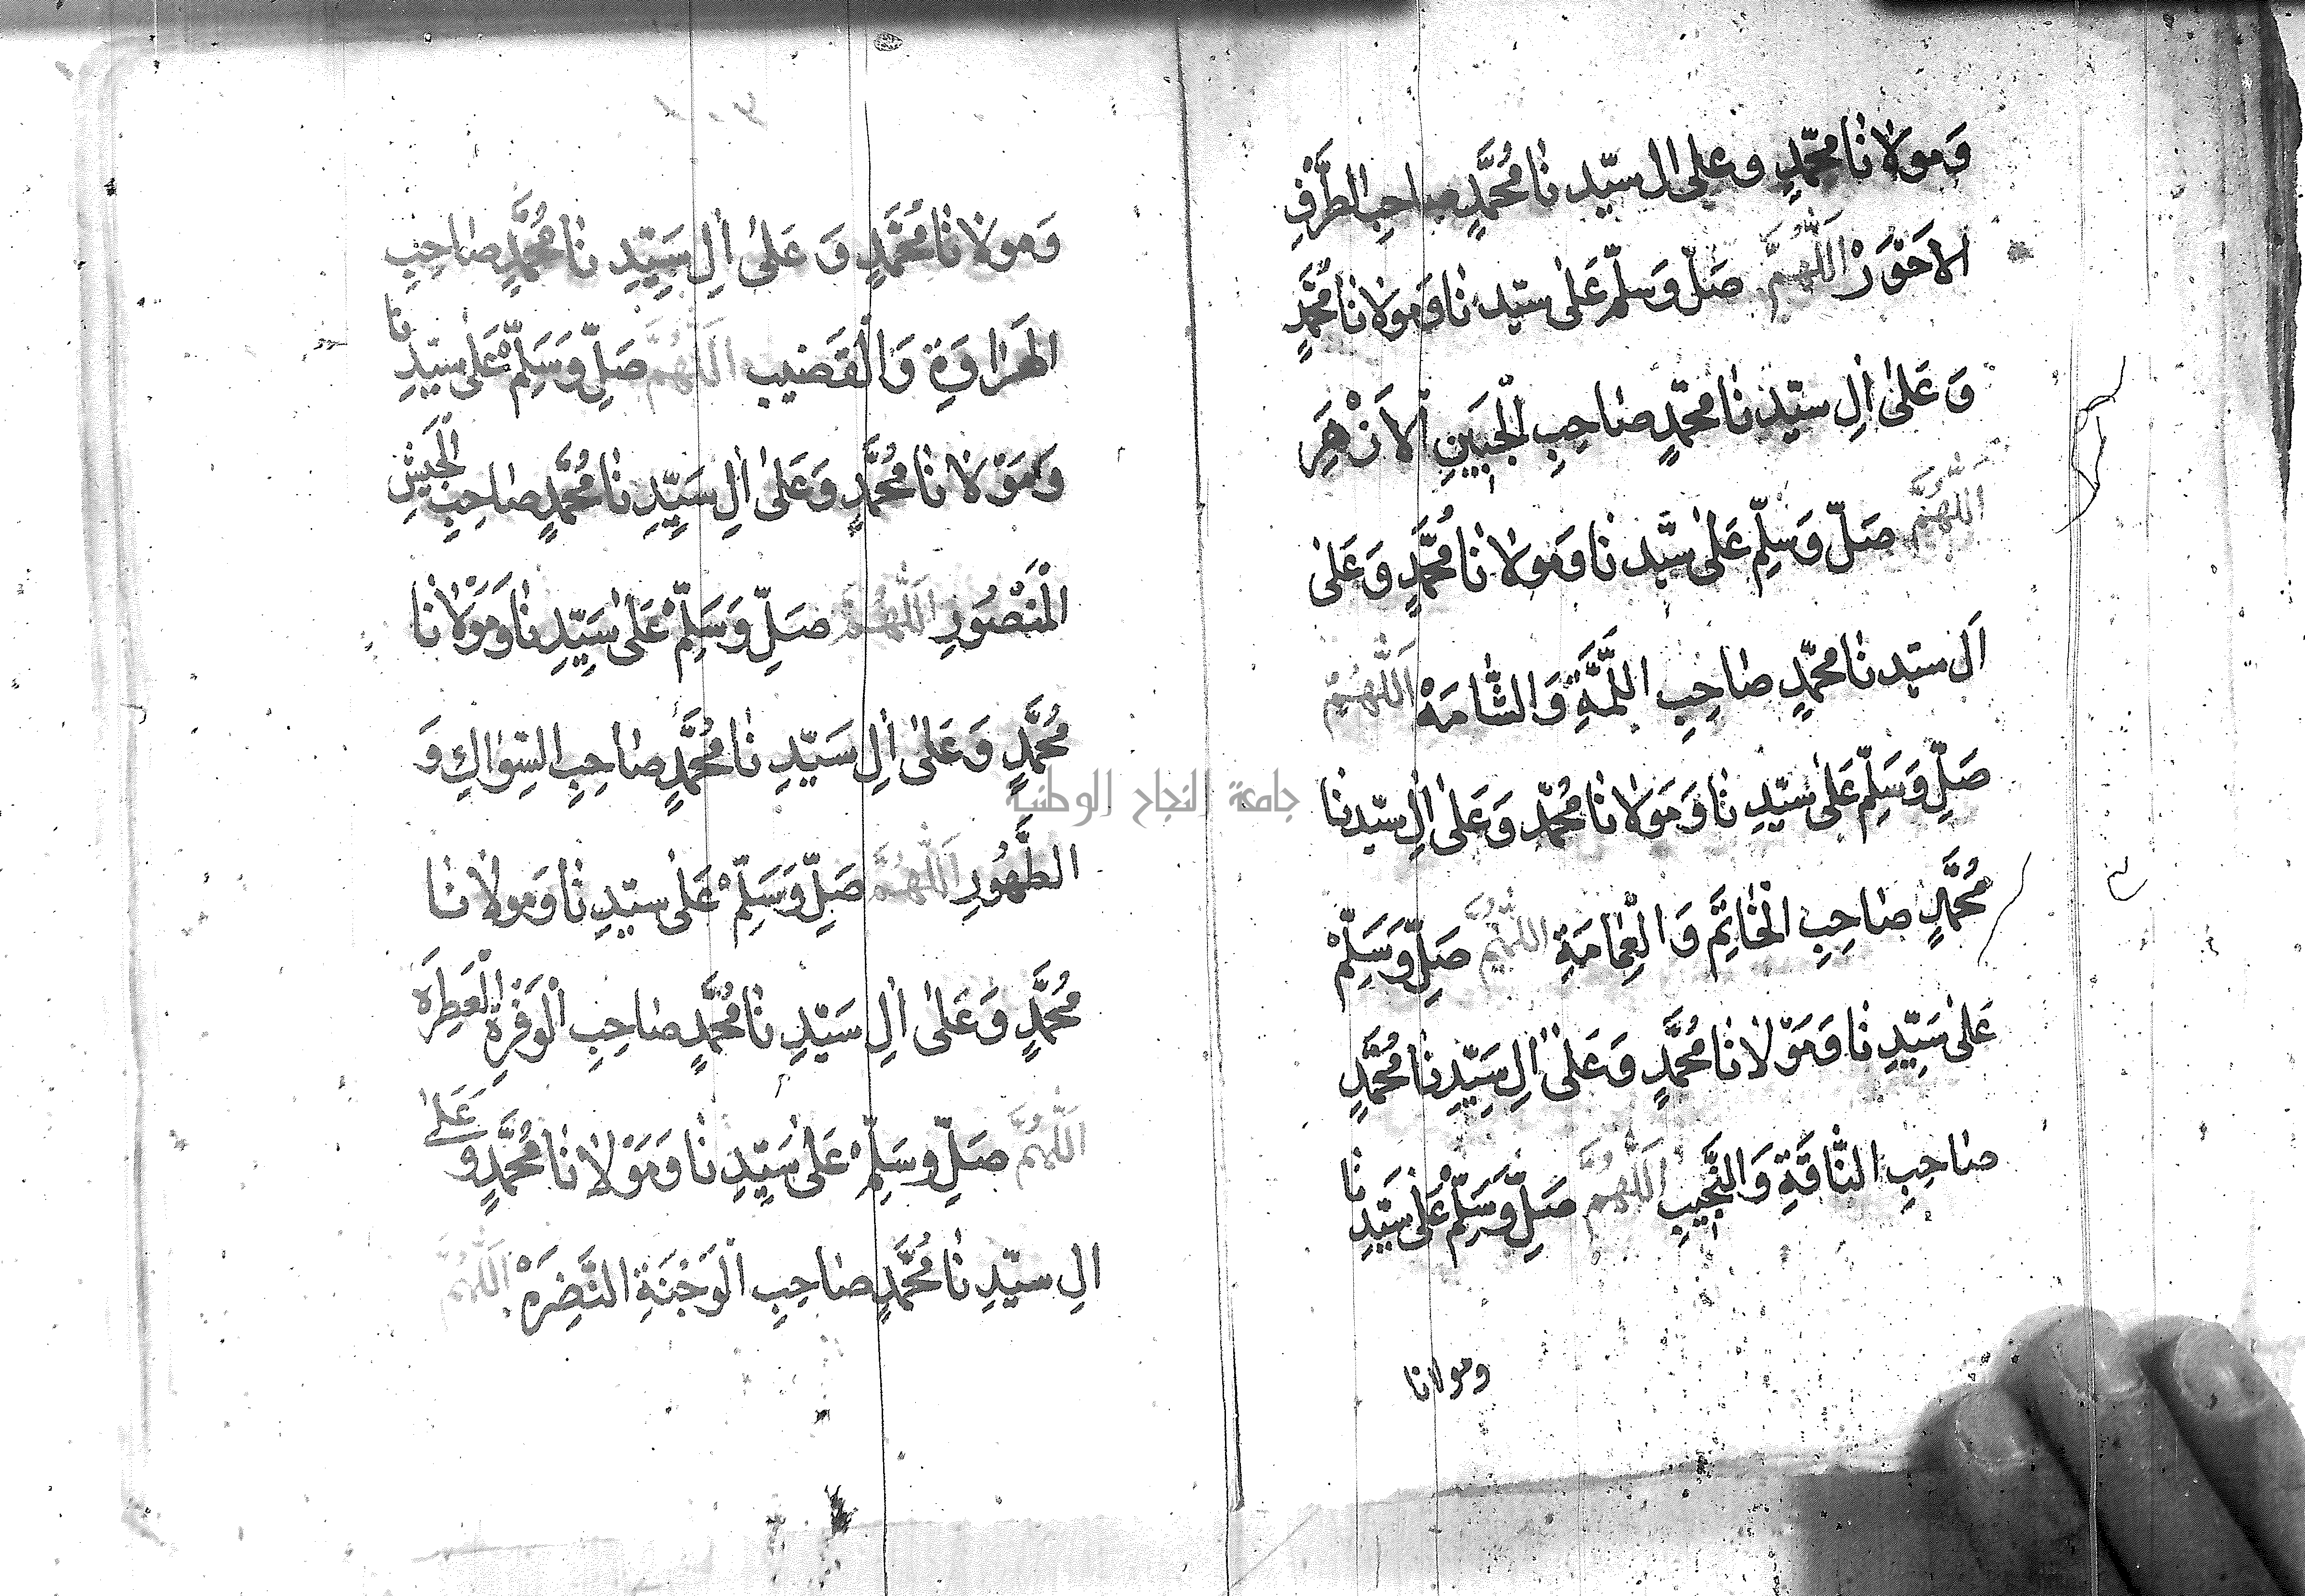 وَمولانا محمّدٍ وعلى ال سيّدنا مُحمَّدٍ صاحب الطَّرْفِ
الاحَوَرْ اَللّهُمَّ صَلّ وَسَلّمْ عَلىٰ سيّدنا وَمَولانا مُحمَّدٍ
وَعَلىٰ اٰلِ سيّدنا محمّدٍ صَاحِبِ الْجَبَينِ الاَزْهَرِ
اَللّٰهُمَّ صَلّ وَسَلِّمْ عَلىٰ سيّدنا وَمَولانا مُحمَّدٍ وَعَلىٰ
اَل سيّدنا محمّدٍ صاحِبِ اللّمَّةِ وَالشَّامَهْ اَللّٰهُمَّ
صَلِّ وَسَلِّمْ عَلىٰ سيّدِنا وَمَولانا مُحمّدٍ وَعَلىٰ اٰلِ سيّدنا
مُحمَّدٍ صَاحِبِ الْخَاتِمِ وَالْعِمَامَةِ اَللّٰهُمَّ صَلِّ وَسَلِّمْ
عَلىٰ سَيِّدِنا وَمَوْلانا مُحمَّدٍ وَعَلىٰ اٰلِ سَيِّدِنا مُحمَّدٍ
صاحِبِ النَّاقَةِ وَالنَّجِيبِ اَللّٰهُمَّ صَلِّ وَسَلِّمْ عَلىٰ سَيّدِنا
ومولانا
وَمولانا مُحَمَّدٍ وَعَلىٰ اٰلِ سَيِّدِنا مُحَمَّدٍ صَاحِبِ
الهَرَاوَةِ وَالْقَضيب اَللّٰهُمَّ صَلِّ وَسَلِّمْ عَلىٰ سيّدِنا
وَمَوْلانا مُحَمَّدٍ وَعَلىٰ اٰلِ سَيِّدِنا مُحَمَّدٍ صاحِبِ الْجَيشِ
الْمَنْصُورِ اَللّٰهُمَّ صَلِّ وَسَلِّمْ عَلىٰ سَيِّدِنا وَمَوْلانا
مُحَمَّدٍ وَعَلىٰ اٰلِ سَيّدِنا مُحَمَّدٍ صاحِبِ السِّوَاكِ وَ
الطَّهُورِ اَللّٰهُمَّ صَلِّ وَسَلِّمْ عَلىٰ سيّدِنا وَمولانا
مُحَمَّدٍ وَعَلىٰ اٰلِ سَيّدِنا مُحَمَّدٍ صاحِبِ الْوَفْرَةِ الْعَطِرَه
اَللّٰهُمَّ صَلِّ وسَلِّمْ عَلىٰ سَيِّدِنا وَمَوْلانا مُحَمَّدٍ وَعَلىٰ
الِ سيّدِنا مُحَمَّدٍ صاحِبِ الْوَجْنَةِ النَّضِرَهْ اَللّٰهُمَّ
جامعة النجاح الوطنية